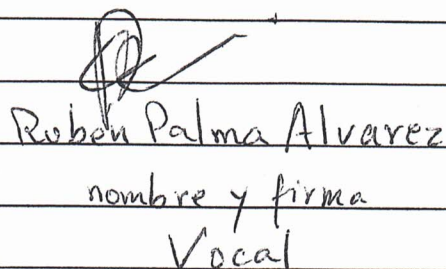 Rubén Palma Alvarez
nombre y firma
Vocal